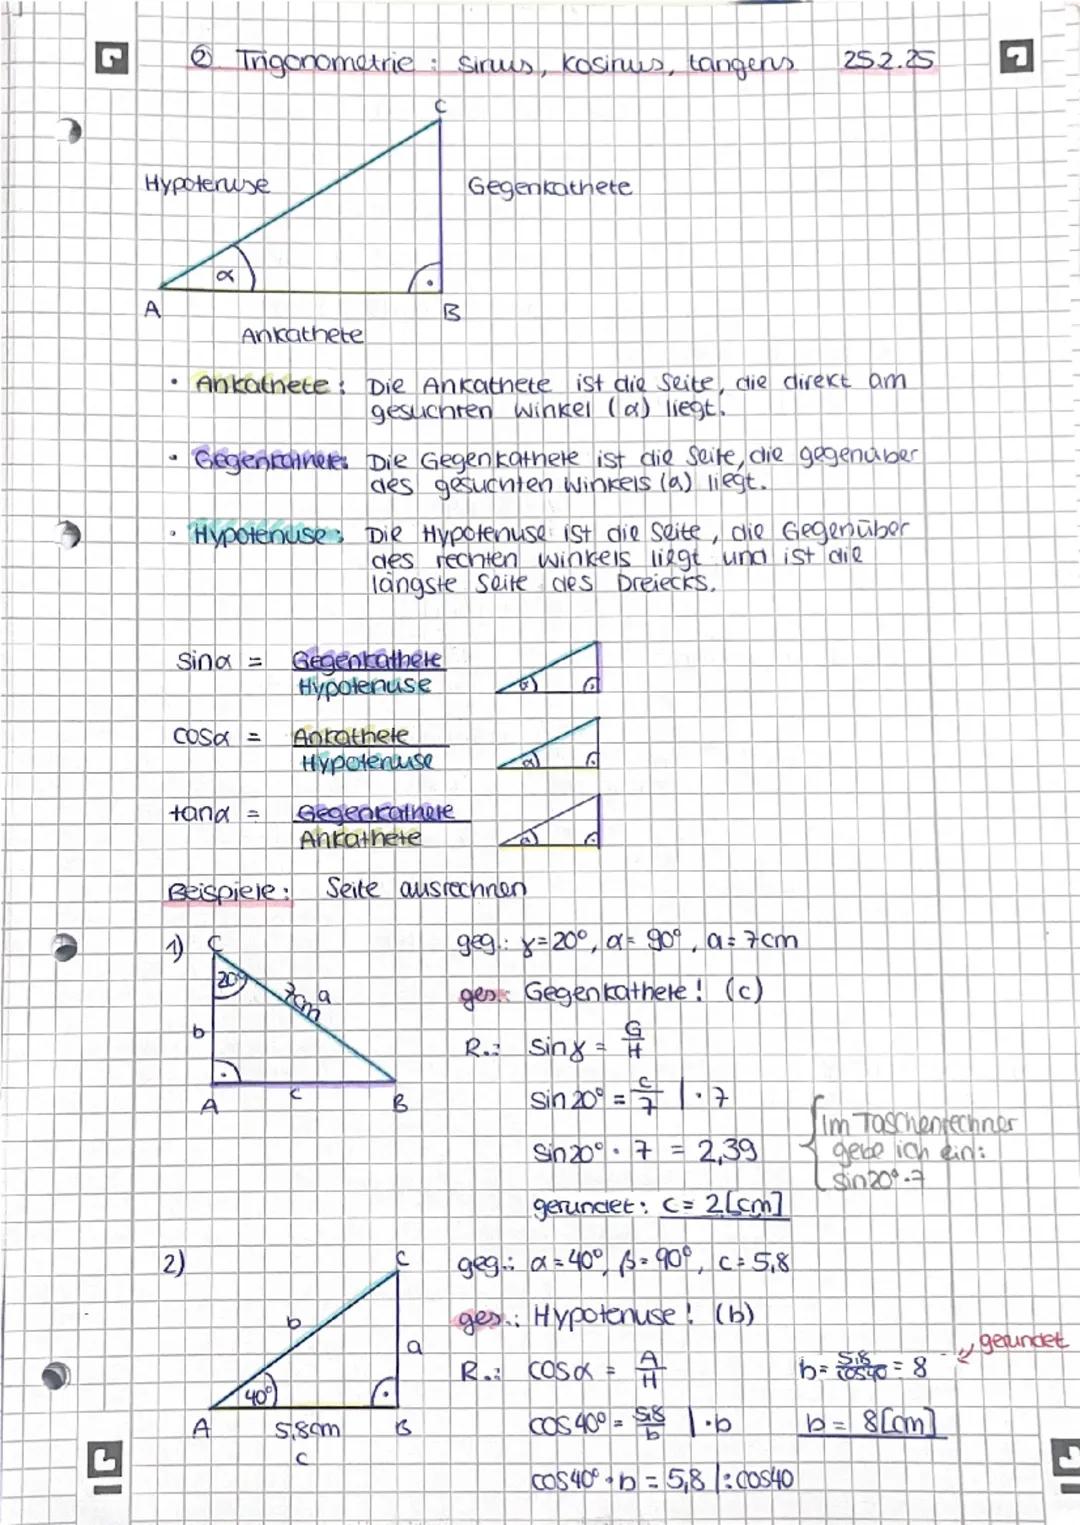 ② Trigonometrie : sinus, kosinus, tangens 25.2.25
C
Hypotenuse
Gegenkathete
α
A
B
Ankathete
• Ankathete : Die Ankathete ist die Seite, die direkt am
gesuchten Winkel (α) liegt.
• Gegenkathete: Die Gegenkathete ist die Seite, die gegenüber
des gesuchten Winkels (α) liegt.
• Hypotenuse : Die Hypotenuse ist die Seite, die Gegenüber
des rechten Winkels liegt und ist die
längste Seite des Dreiecks.
sinα = Gegenkathete
Hypotenuse
α
cosα = Ankathete
Hypotenuse
α
tanα = Gegenkathete
Ankathete
α
Beispiele : Seite ausrechnen
1) C
20°
7cm a
b
A
c
B
geg.: γ=20°, α= 90°, a= 7cm
ges.: Gegenkathete! (c)
R.: sinγ = G/H
sin 20° = c/7 | · 7
sin20° · 7 = 2,39
gerundet: c= 2[cm]
Im Taschenrechner
gebe ich ein:
sin20°·7
2)
C
b
a
40°
A
5,8cm
B
c
geg.: α=40°, β=90°, c=5,8
ges.: Hypotenuse! (b)
R.: cosα = A/H
cos40° = 5,8/b | ·b
cos40° · b = 5,8 |:cos40
b= 5,8/cos40 = 8
gerundet
b= 8[cm]